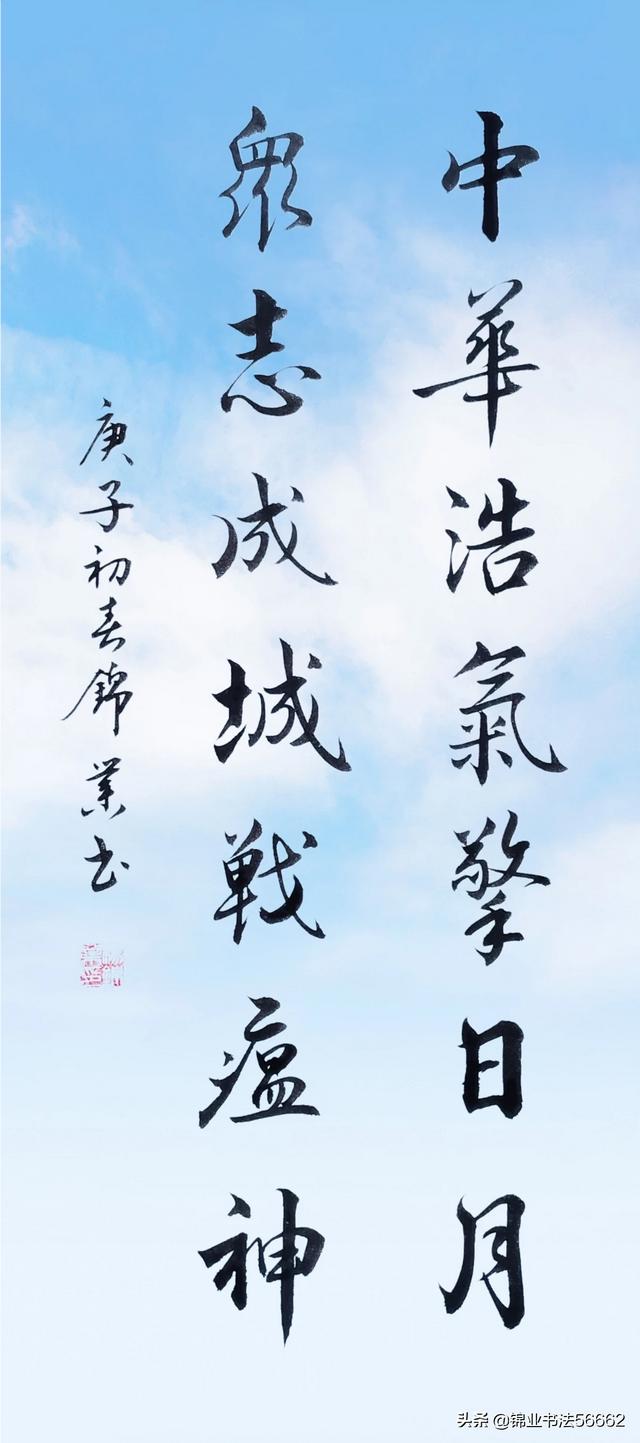 中華浩氣擎日月
衆志成城戰瘟神
庚子初春錦業书
头条 @锦业书法56662